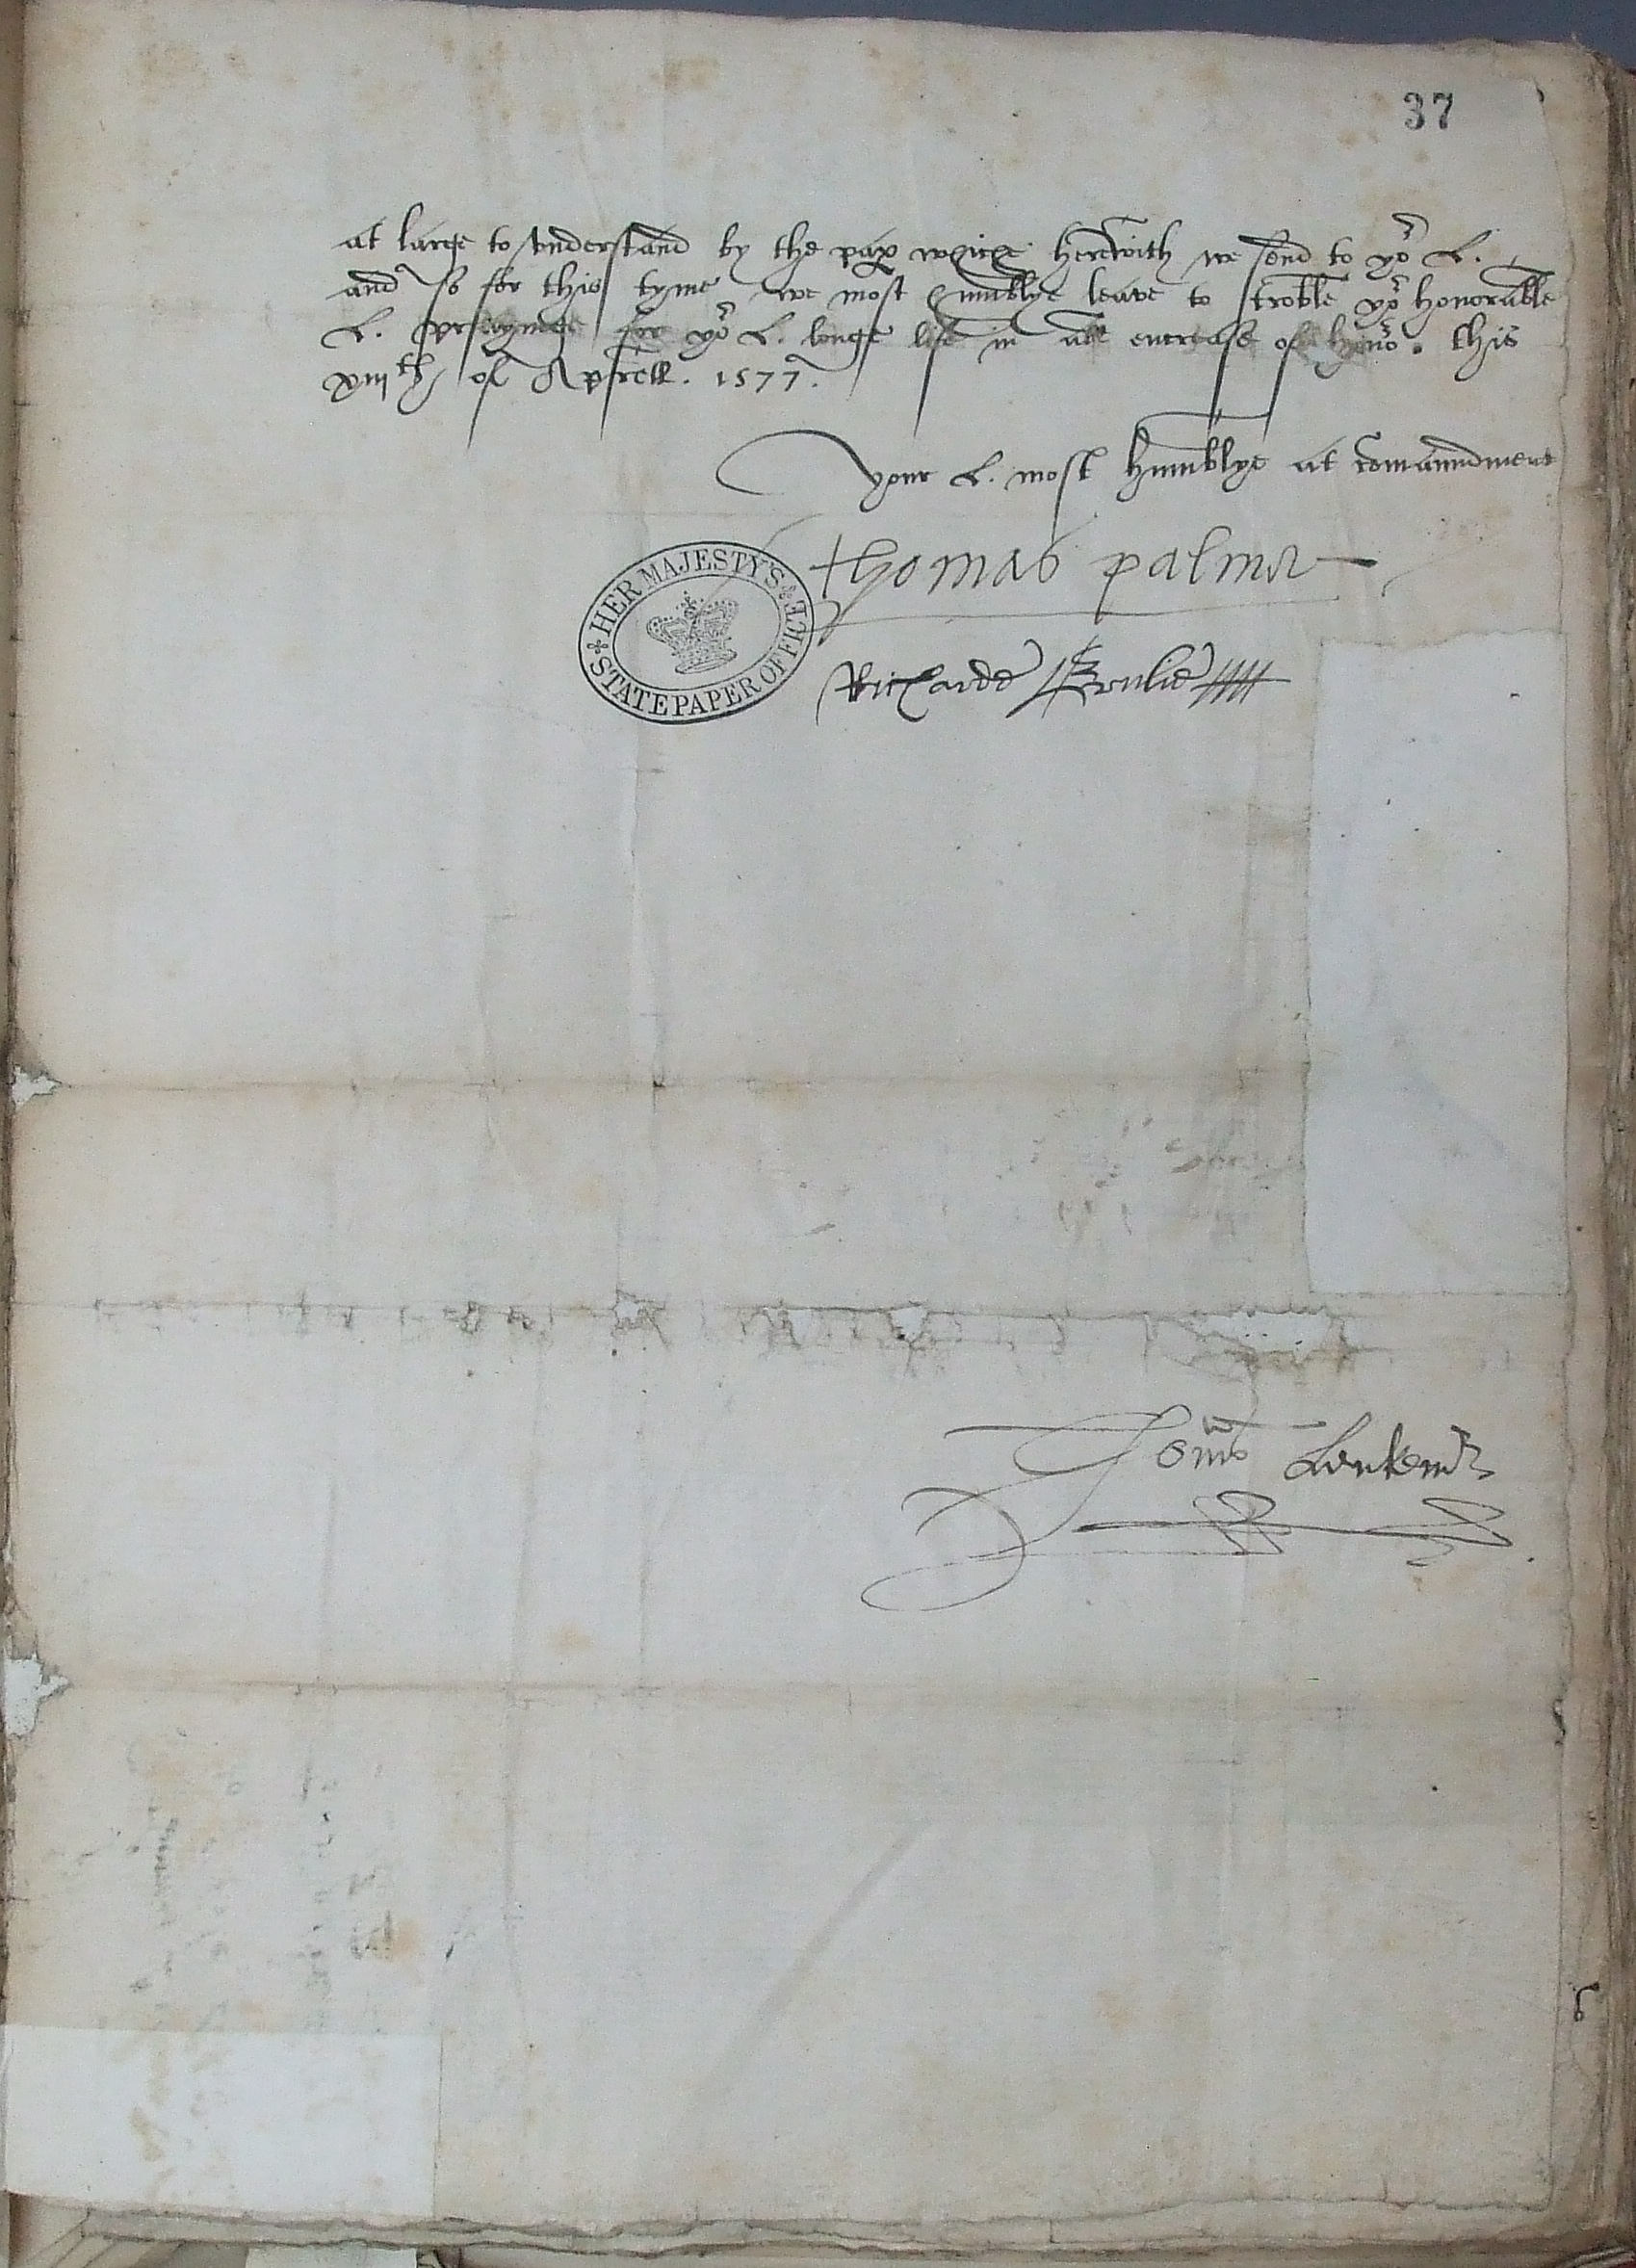 37
at large to understand by the pap which herewith we send to yor L.
and so for this tyme we most humblye leave to troble yor honorable
L. prayinge for yor L. longe life in all encrease of honor. this
xiiith of Aprell. 1577.
your L. most humblye at comaundment
thomas palmer
HER MAJESTY'S STATE PAPER OFFICE
Richarde